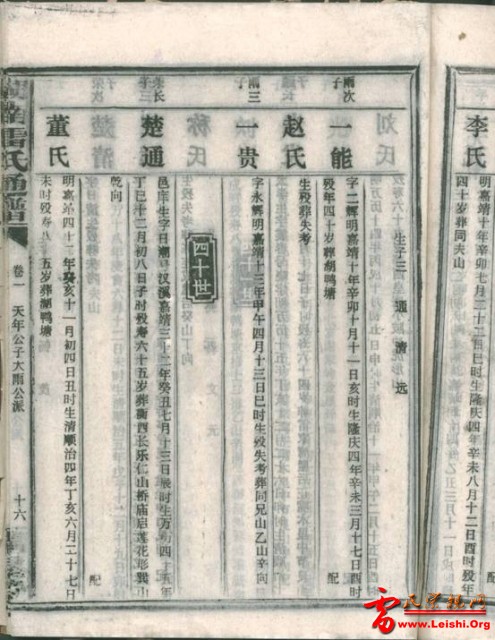 李氏
明嘉靖十年辛卯七月二十二日巳时生隆庆四年辛未八月十二日酉时殁年
四十岁葬同夫山
雨次子
一能
字二辉明嘉靖十年辛卯十月十一日亥时生隆庆四年辛未三月十七日酉时
殁年四十岁葬胡鸭塘
配
赵氏
生殁葬失考
生子三 通 清 远
雨三子
一贵
字永辉明嘉靖十三年甲午四月十三日巳时生殁失考葬同兄山乙山辛向
四十世
楚通
邑庠生字日潮号汉溪嘉靖三十二年癸丑七月十三日辰时生万历四十五年
丁巳十二月初八日子时殁寿六十五岁葬衡西长乐仁山桥庙启莲花形巽山
乾向
配
董氏
明嘉靖四十二年癸亥十一月初四日丑时生清顺治四年丁亥六月二十七日
未时殁寿八五岁葬胡鸭塘
湖南雷氏通谱
卷一
天年公子大雨公派
十六
www.Leishi.Org